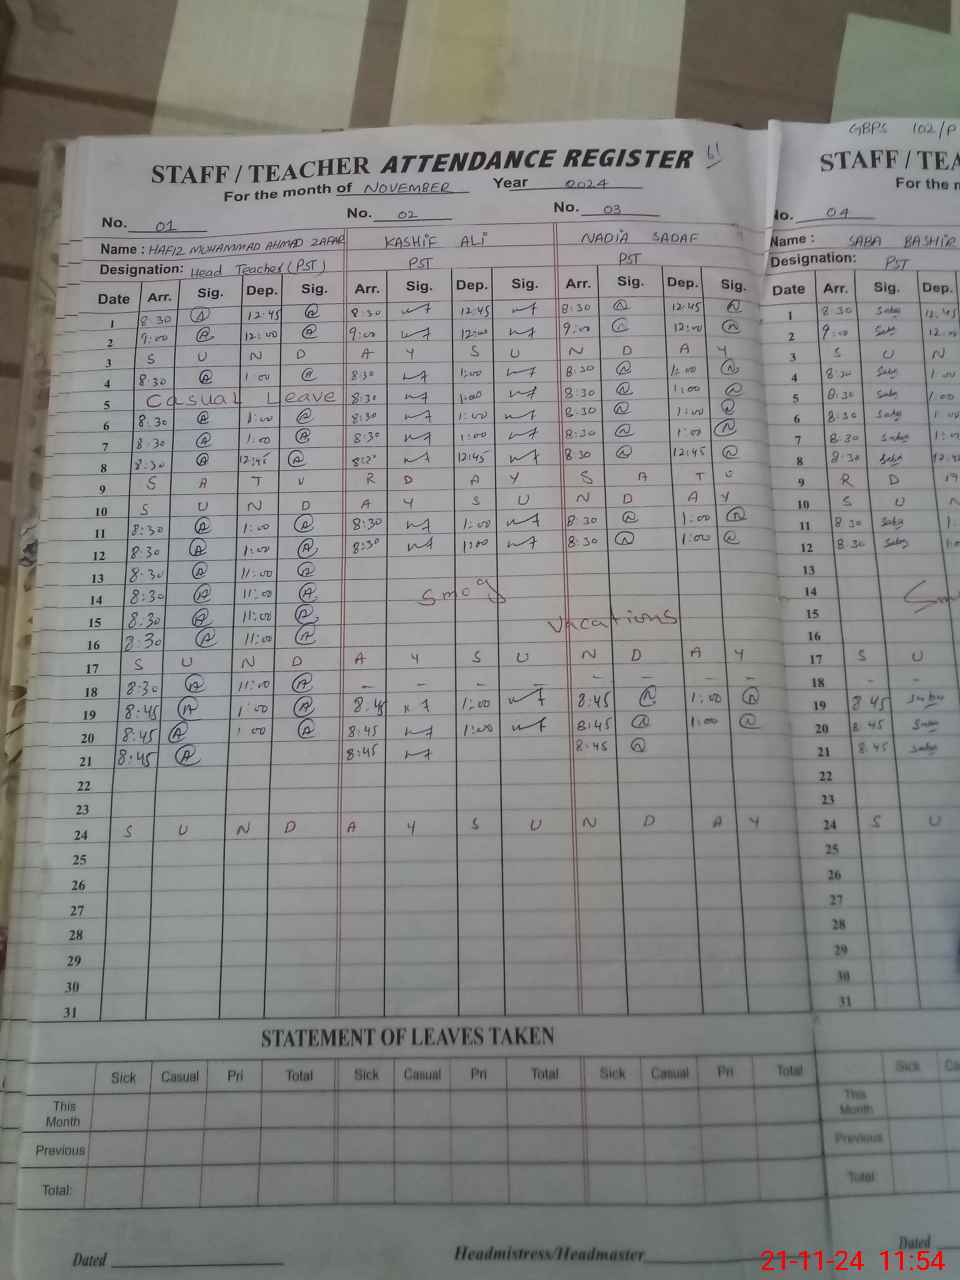 GBPS 102/P
STAFF / TEACHER ATTENDANCE REGISTER 61 STAFF / TEA
For the month of NOVEMBER Year 2024 For the m
No. 01 No. 02 No. 03 No. 04
Name : HAFIZ MUHAMMAD AHMAD ZAFAR KASHIF ALI NADIA SADAF Name : SABA BASHIR
Designation: Head Teacher (PST) PST PST Designation: PST
Date Arr. Sig. Dep. Sig. Arr. Sig. Dep. Sig. Arr. Sig. Dep. Sig. Date Arr. Sig. Dep.
1 8:30 12:45 8:30 12:45 8:30 12:45 1 8:30 Saba 12:45
2 9:00 12:00 9:00 12:00 9:00 12:00 2 9:00 Saba 12:00
3 S U N D A Y S U N D A Y 3 S U N
4 8:30 1:00 8:30 1:00 8:30 1:00 4 8:30 Saba 1:00
5 Casual Leave 8:30 1:00 8:30 1:00 5 8:30 Saba 1:00
6 8:30 1:00 8:30 1:00 8:30 1:00 6 8:30 Saba 1:00
7 8:30 1:00 8:30 1:00 8:30 1:00 7 8:30 Saba 1:00
8 8:30 12:45 8:30 12:45 8:30 12:45 8 8:30 Saba 12:45
9 S A T U R D A Y S A T U 9 R D
10 S U N D A Y S U N D A Y 10 S U N
11 8:30 1:00 8:30 1:00 8:30 1:00 11 8:30 Saba 1:
12 8:30 1:00 8:30 1:00 8:30 1:00 12 8:30 Saba 1:0
13 8:30 11:00 13
14 8:30 11:00 Smog 14 Sm
15 8:30 11:00 Vacations 15
16 8:30 11:00 16
17 S U N D A Y S U N D A Y 17 S U
18 8:30 11:00 – – – – – – – – 18 - -
19 8:45 1:00 8:45 1:00 8:45 1:00 19 8:45 Saba
20 8:45 1:00 8:45 1:00 8:45 1:00 20 8:45 Saba
21 8:45 8:45 8:45 21 8:45 Saba
22 22
23 23
24 S U N D A Y S U N D A Y 24 S U
25 25
26 26
27 27
28 28
29 29
30 30
31 31
STATEMENT OF LEAVES TAKEN
Sick Casual Pri Total Sick Casual Pri Total Sick Casual Pri Total Sick Ca
This Month This Month
Previous Previous
Total: Total:
Dated Headmistress/Headmaster Dated
21-11-24 11:54